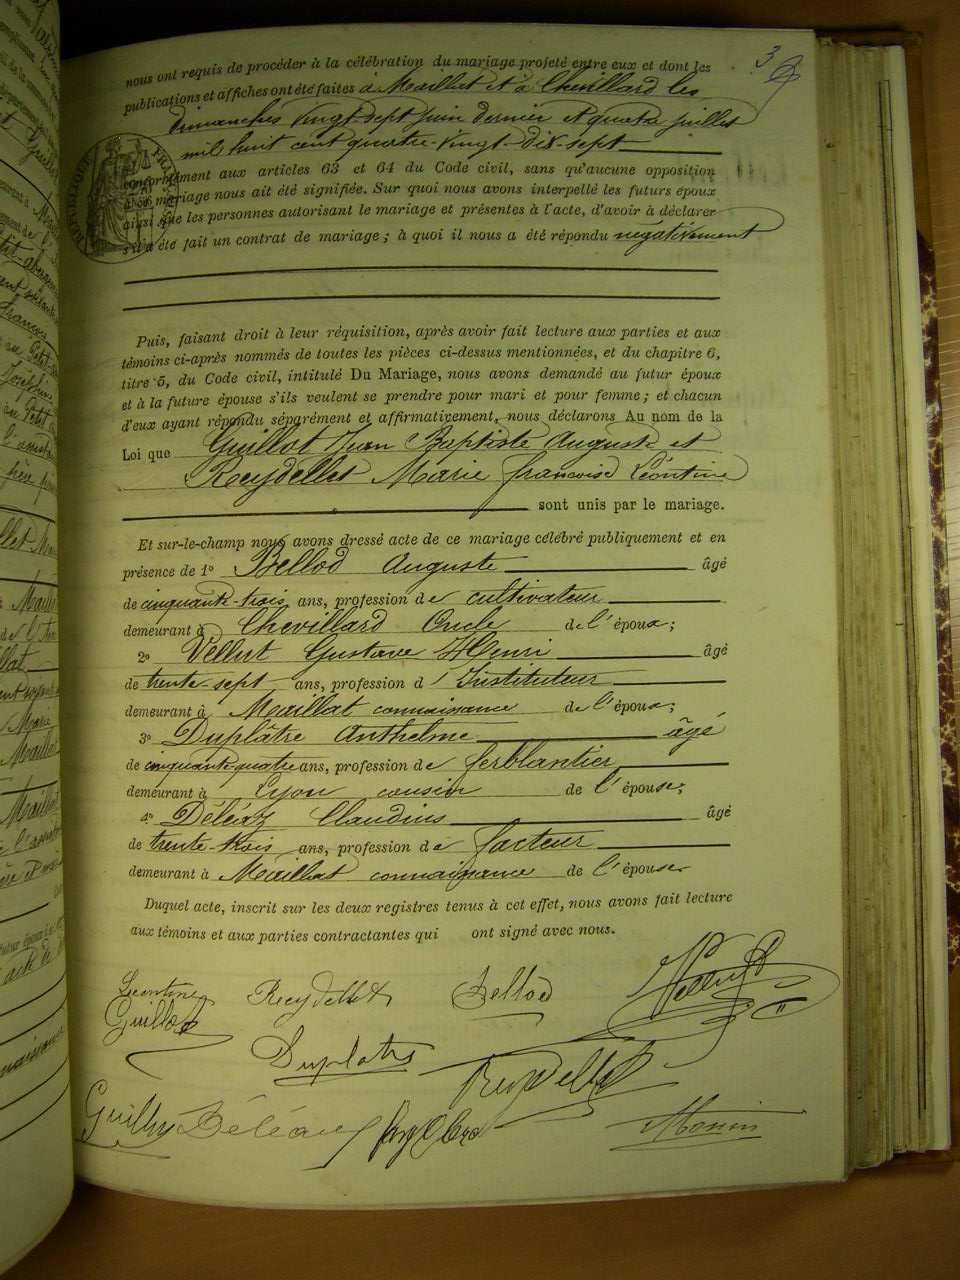 3
nous ont requis de procéder à la célébration du mariage projeté entre eux et dont les
publications et affiches ont été faites à Maillat et à Chevillard les
dimanches vingt-sept juin dernier et quatre juillet
mil huit cent quatre-vingt-dix-sept
conformément aux articles 63 et 64 du Code civil, sans qu'aucune opposition
au dit mariage nous ait été signifiée. Sur quoi nous avons interpellé les futurs époux
ainsi que les personnes autorisant le mariage et présentes à l'acte, d'avoir à déclarer
s'il a été fait un contrat de mariage ; à quoi il nous a été répondu négativement
Puis, faisant droit à leur réquisition, après avoir fait lecture aux parties et aux
témoins ci-après nommés de toutes les pièces ci-dessus mentionnées, et du chapitre 6,
titre 5, du Code civil, intitulé Du Mariage, nous avons demandé au futur époux
et à la future épouse s'ils veulent se prendre pour mari et pour femme ; et chacun
d'eux ayant répondu séparément et affirmativement, nous déclarons Au nom de la
Loi que Guillot Jean Baptiste Auguste et
Reydellet Marie françoise Léontine
sont unis par le mariage.
Et sur-le-champ nous avons dressé acte de ce mariage célébré publiquement et en
présence de 1º Bellod Auguste âgé
de cinquante-trois ans, profession de cultivateur
demeurant à Chevillard Oncle de l'époux;
2º Vellut Gustave Henri âgé
de trente-sept ans, profession d'Instituteur
demeurant à Maillat connaissance de l'époux;
3º Duplâtre Anthelme âgé
de cinquante-quatre ans, profession de ferblantier
demeurant à Lyon cousin de l'épouse;
4º Déléaz Claudius âgé
de trente-trois ans, profession de facteur
demeurant à Maillat connaissance de l'épouse
Duquel acte, inscrit sur les deux registres tenus à cet effet, nous avons fait lecture
aux témoins et aux parties contractantes qui ont signé avec nous.
Léontine Reydellet Bellod Vellut
Guillot
Duplatre Reydellet
Déléaz
Monin